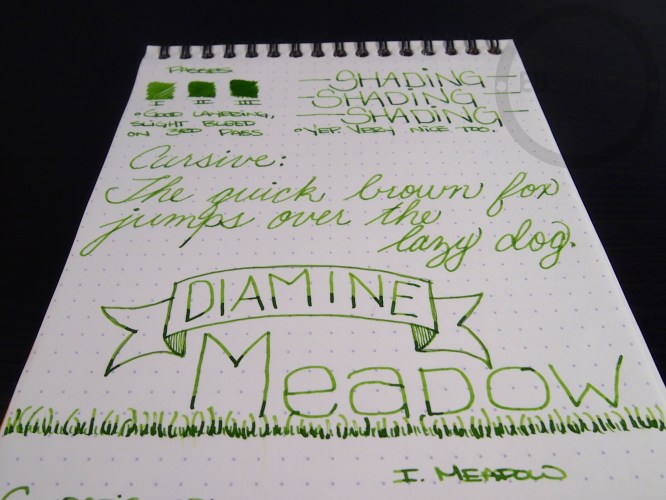 PASSES
I II III
• GOOD LAYERING,
SLIGHT BLEED
ON 3RD PASS
SHADING
SHADING
SHADING
• YEP. VERY NICE TOO.
Cursive:
The quick brown fox
jumps over the
lazy dog.
DIAMINE
Meadow
I. MEADOW